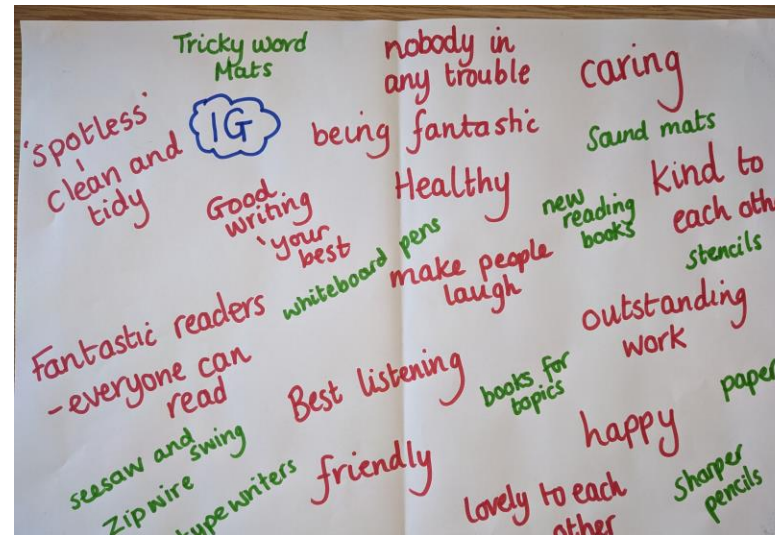 Tricky word
Mats
nobody in
any trouble
caring
'spotless'
clean and
tidy
IG
being fantastic
Sound mats
Good
writing
'your
best
Healthy
new
reading
books
Kind to
each
stencils
whiteboard pens
make people
laugh
outstanding
work
Fantastic readers
- everyone can
read
Best listening
books for
topics
paper
happy
seesaw and
swing
Zipwire
typewriters
friendly
lovely to each
other
Sharper
pencils